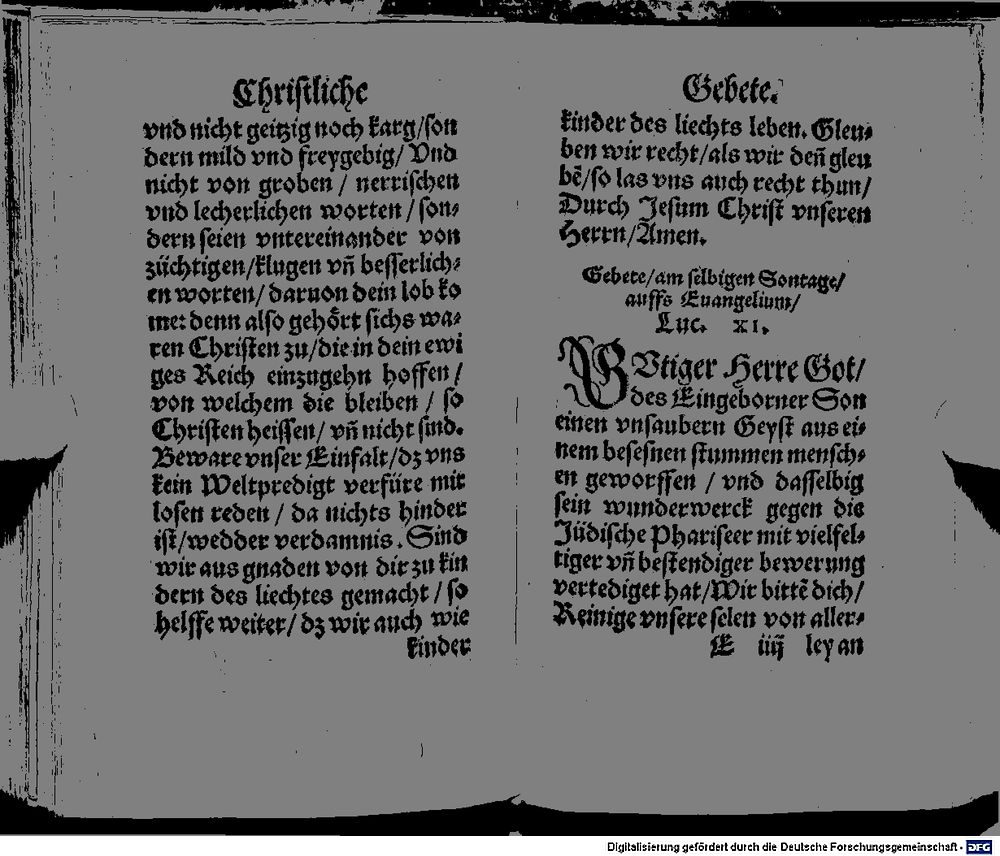 Christliche
vnd nicht geitzig noch karg/son
dern mild vnd freygebig/ Vnd
nicht von groben / nerrischen
vnd lecherlichen worten / son⸗
dern seien vntereinander von
züchtigen/klugen vñ besserlich⸗
en worten/ daruon dein lob ko
me: denn also gehört sichs wa⸗
ren Christen zu/die in dein ewi
ges Reich einzugehn hoffen /
von welchem die bleiben / so
Christen heissen/ vñ nicht sind.
Beware vnser Einfalt/dz vns
kein Weltpredigt verfüre mit
losen reden / da nichts hinder
ist/wedder verdamnis. Sind
wir aus gnaden von dir zu kin
dern des liechtes gemacht / so
helffe weiter/ dz wir auch wie
kinder
Gebete.
kinder des liechts leben. Gleu⸗
ben wir recht/als wir deñ gleu
bē/so las vns auch recht thun/
Durch Jesum Christ vnseren
Herrn/Amen.
Gebete/am selbigen Sontage/
auffs Euangelium/
Luc. XI.
GVtiger Herre Got/
des Eingeborner Son
einen vnsaubern Geyst aus ei⸗
nem besesnen stummen mensch⸗
en geworffen / vnd dasselbig
sein wunderwerck gegen die
Jüdische Phariseer mit vielfel⸗
tiger vñ bestendiger bewerung
vertediget hat/Wir bittē dich/
Reinige vnsere selen von aller⸗
E iiij ley an
Digitalisierung gefördert durch die Deutsche Forschungsgemeinschaft - DFG